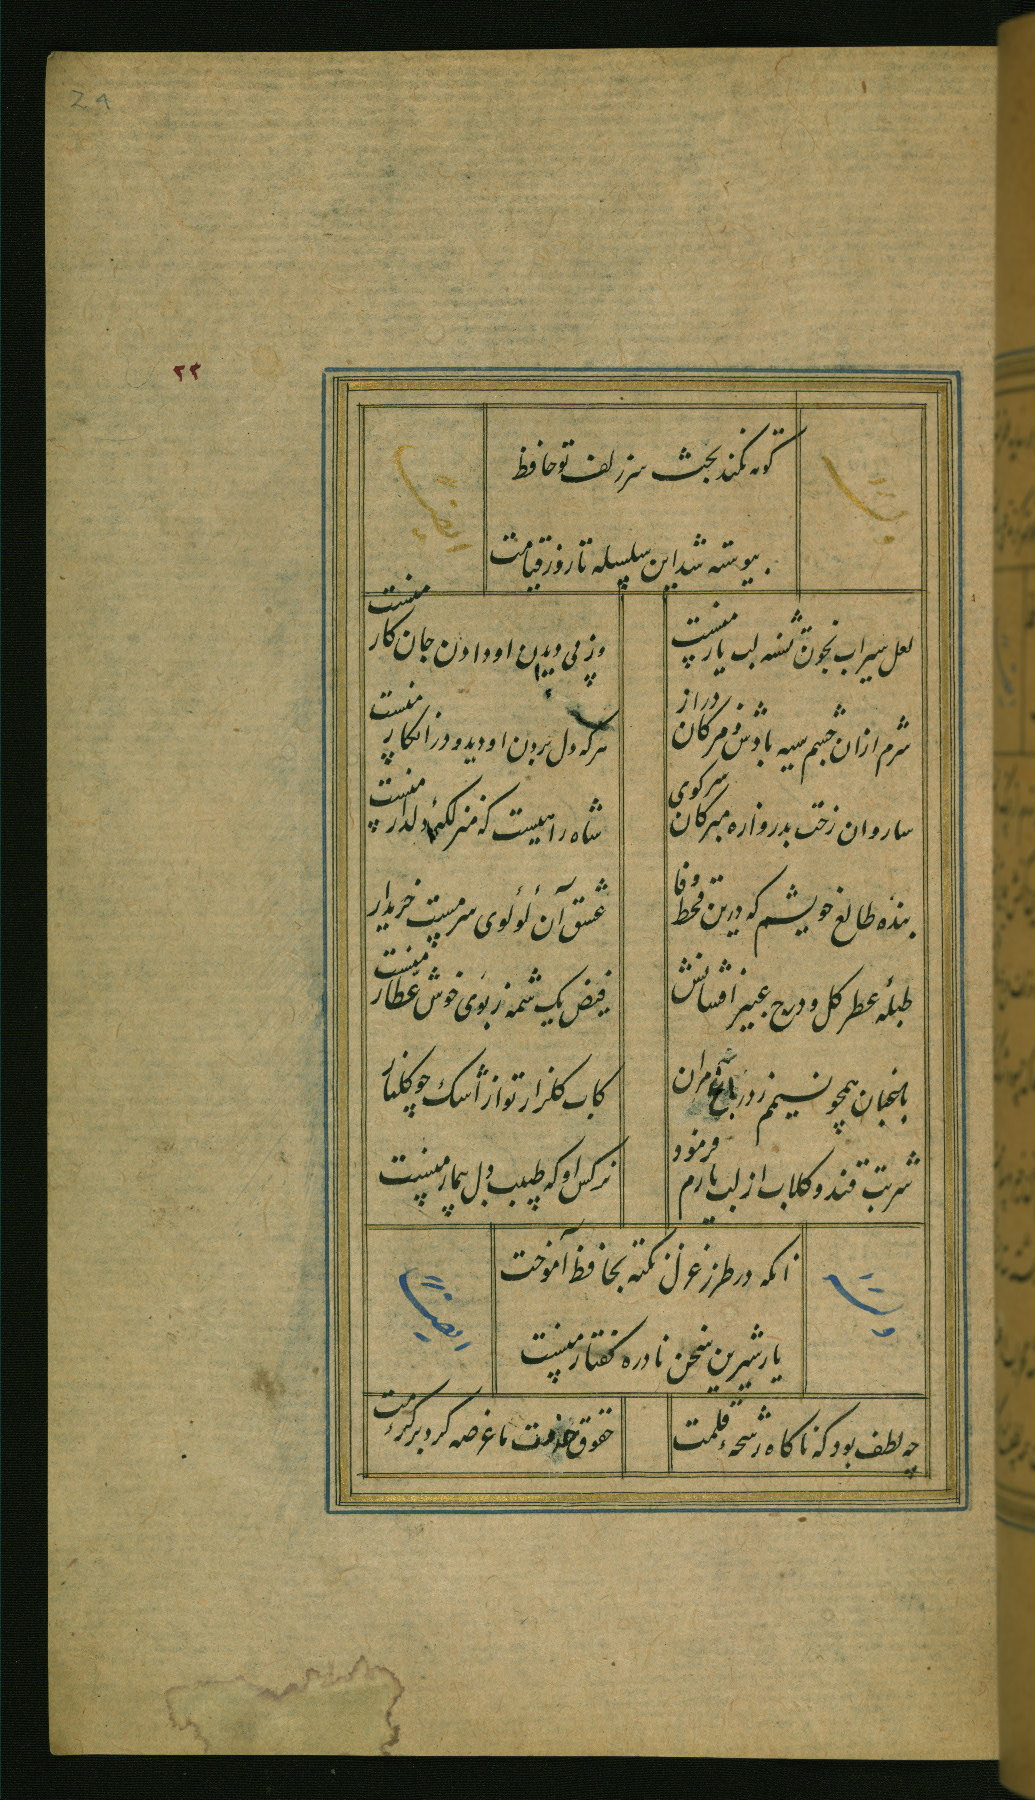 24
۲۳
کوته نکند بحث سر زلف تو حافظ
وله
ایضاً
پیوسته شد این سلسله تا روز قیامت
لعل سیراب بخون تشنه لب یار منست
وز پی دیدن او دادن جان کار منست
شرم ازان چشم سیه بادش و مژکان دراز
هرکه دل بردن او دید و در انکار منست
ساروان رخت بدروازه مبر کان سر کوی
شاه راهیست که منزلکه دلدار منست
بنده طالع خویشم که درین قحط وفا
عشق آن لولوی سرمست خریدار منست
طبلهٔ عطر کل و درج عبیر افشانش
فیض یک شمه ز بوی خوش عطار منست
باغبان همچو نسیمم ز در باغ مران
کاب کلزار تو از اشک چو کلنار
شربت قند و کلاب از لب یارم فرمود
نرکس او که طبیب دل بیمار منست
آنکه در طرز غزل نکته بحافظ آموخت
وله
ایضاً
یار شیرین سخن نادره کفتار منست
چه لطف بود که ناکاه رشحهٔ قلمت
حقوق خدمت ما عرضه کرد بر کرمت